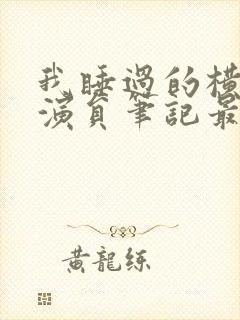 我睡過的橫
演員筆記最
黃龍練